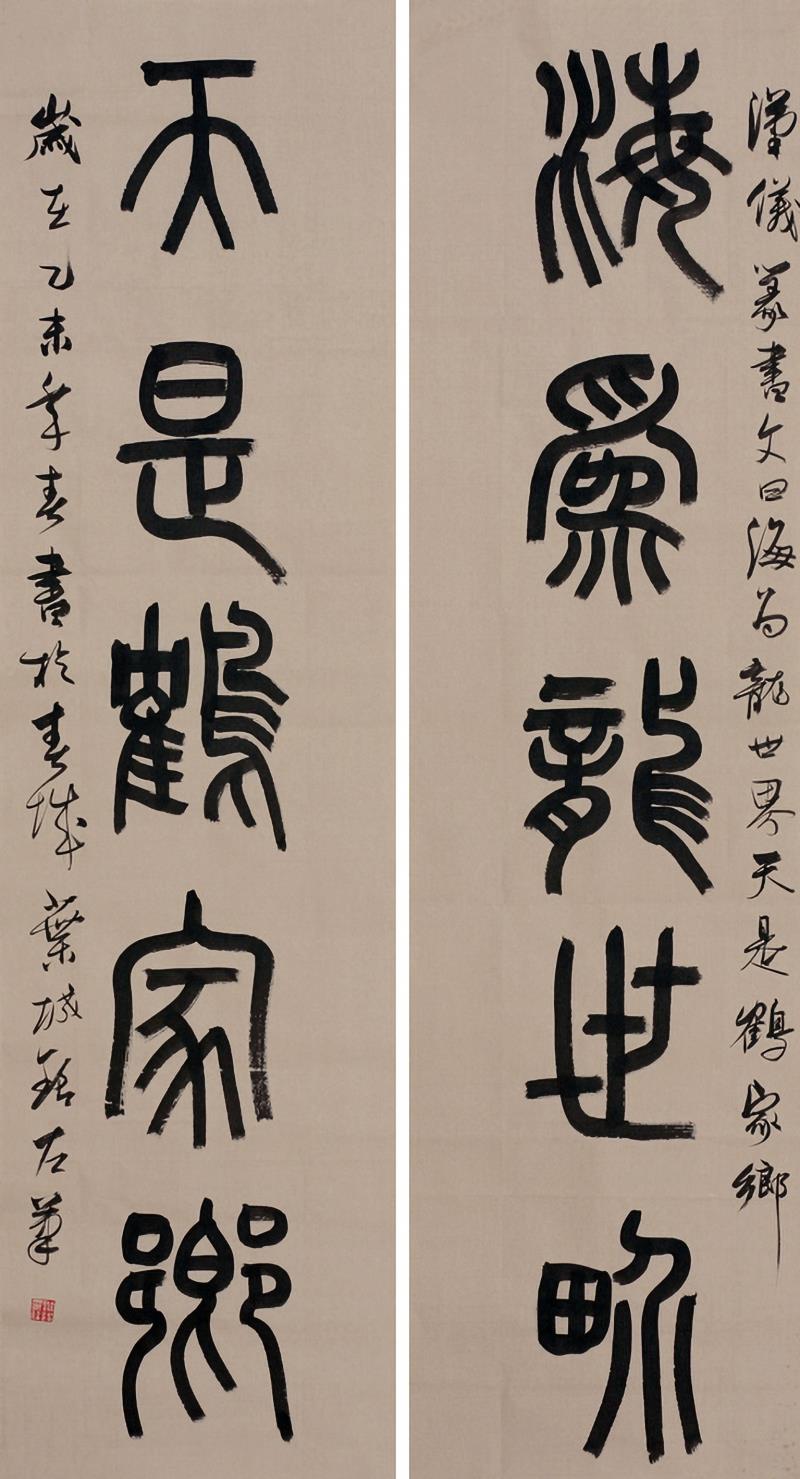 漢儀篆書文曰海为龍世界天是鶴家鄉
海爲龍世畍
天是鶴家鄉
歲在乙未年春書於春城葉左筆